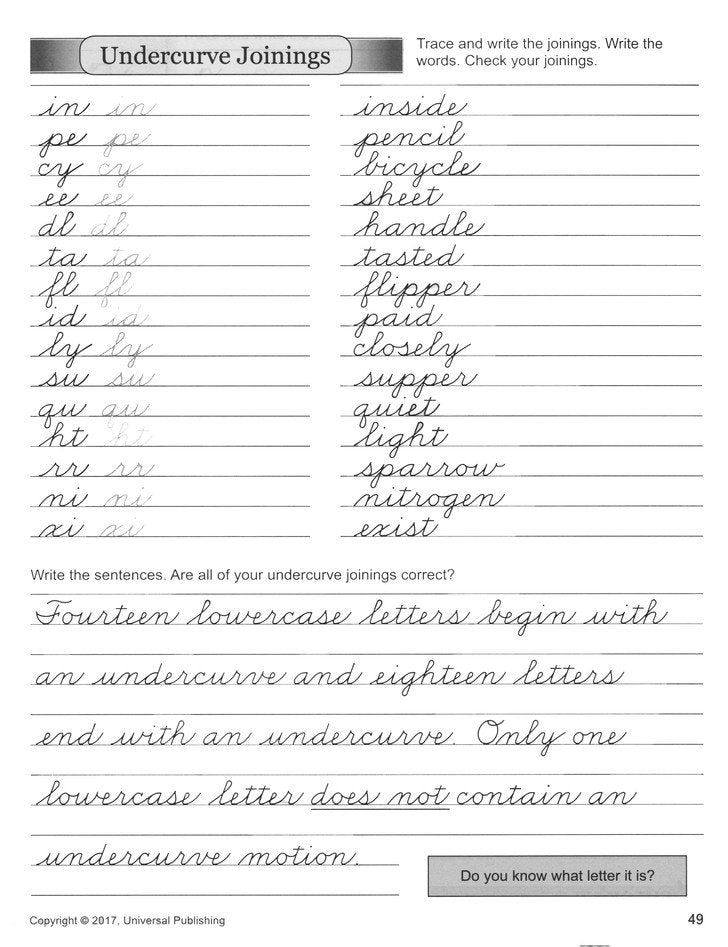 Undercurve Joinings
Trace and write the joinings. Write the
words. Check your joinings.
in in
pe pe
cy cy
ee ee
dl dl
ta ta
fl fl
id id
ly ly
su su
qu qu
ht ht
rr rr
ni ni
xi xi
inside
pencil
bicycle
sheet
handle
tasted
flipper
paid
closely
supper
quiet
light
sparrow
nitrogen
exist
Write the sentences. Are all of your undercurve joinings correct?
Fourteen lowercase letters begin with
an undercurve and eighteen letters
end with an undercurve. Only one
lowercase letter does not contain an
undercurve motion.
Do you know what letter it is?
Copyright © 2017, Universal Publishing
49